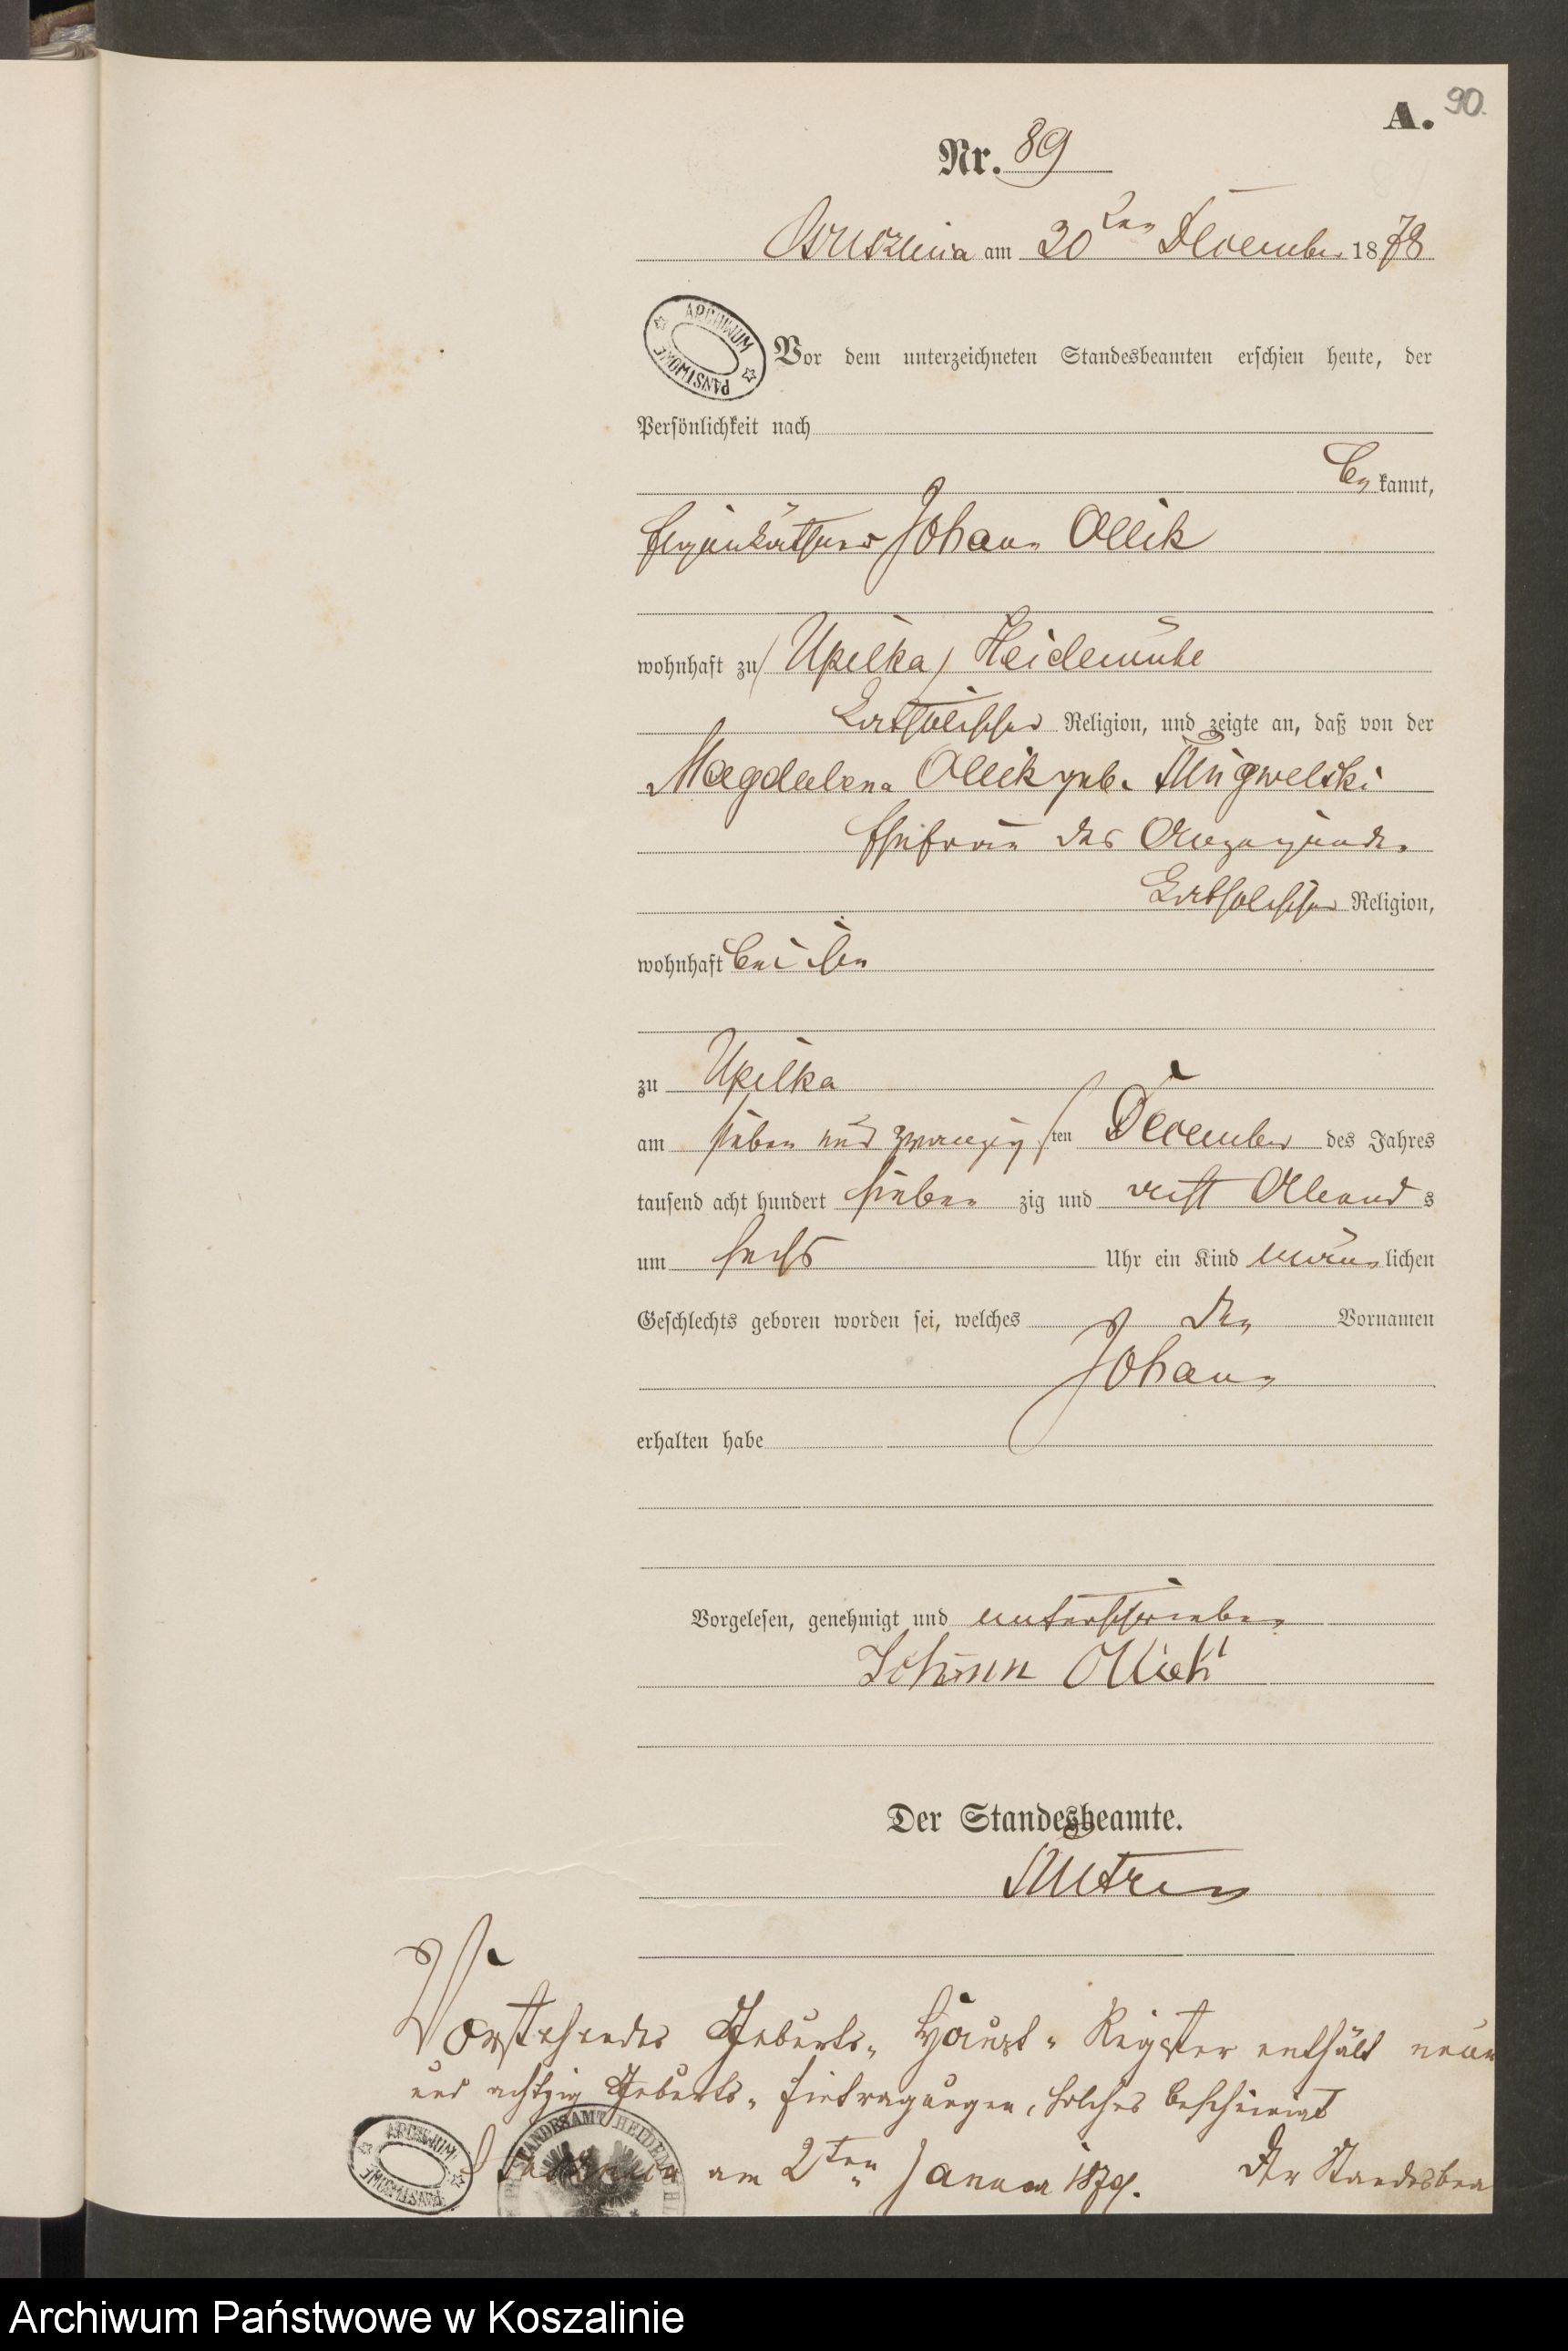 A. 90.
Nr. 89
am 30ten December 1878
ARCHIWUM PAŃSTWOWE
Vor dem unterzeichneten Standesbeamten erschien heute, der
Persönlichkeit nach
be kannt,
Eigenkäthner Johann Ollik
wohnhaft zu (Upilka) Heidemühl
katholischer Religion, und zeigte an, daß von der
Magdalena Ollik geb.
Ehefrau des Anzeigenden
katholischer Religion,
wohnhaft bei ihm
zu Upilka
am sieben und zwanzigsten December des Jahres
tausend acht hundert sieben zig und acht Abends
um sechs Uhr ein Kind männlichen
Geschlechts geboren worden sei, welches den Vornamen
Johann
erhalten habe
Vorgelesen, genehmigt und unterschrieben
Johann Ollick
Der Standesbeamte.
Vorstehendes Geburts-Haupt-Register enthält neun
und achtzig Geburts-Eintragungen, solches bescheinigt
ARCHIWUM PAŃSTWOWE
am 2ten Januar 1879. Der Standesbea
Archiwum Państwowe w Koszalinie